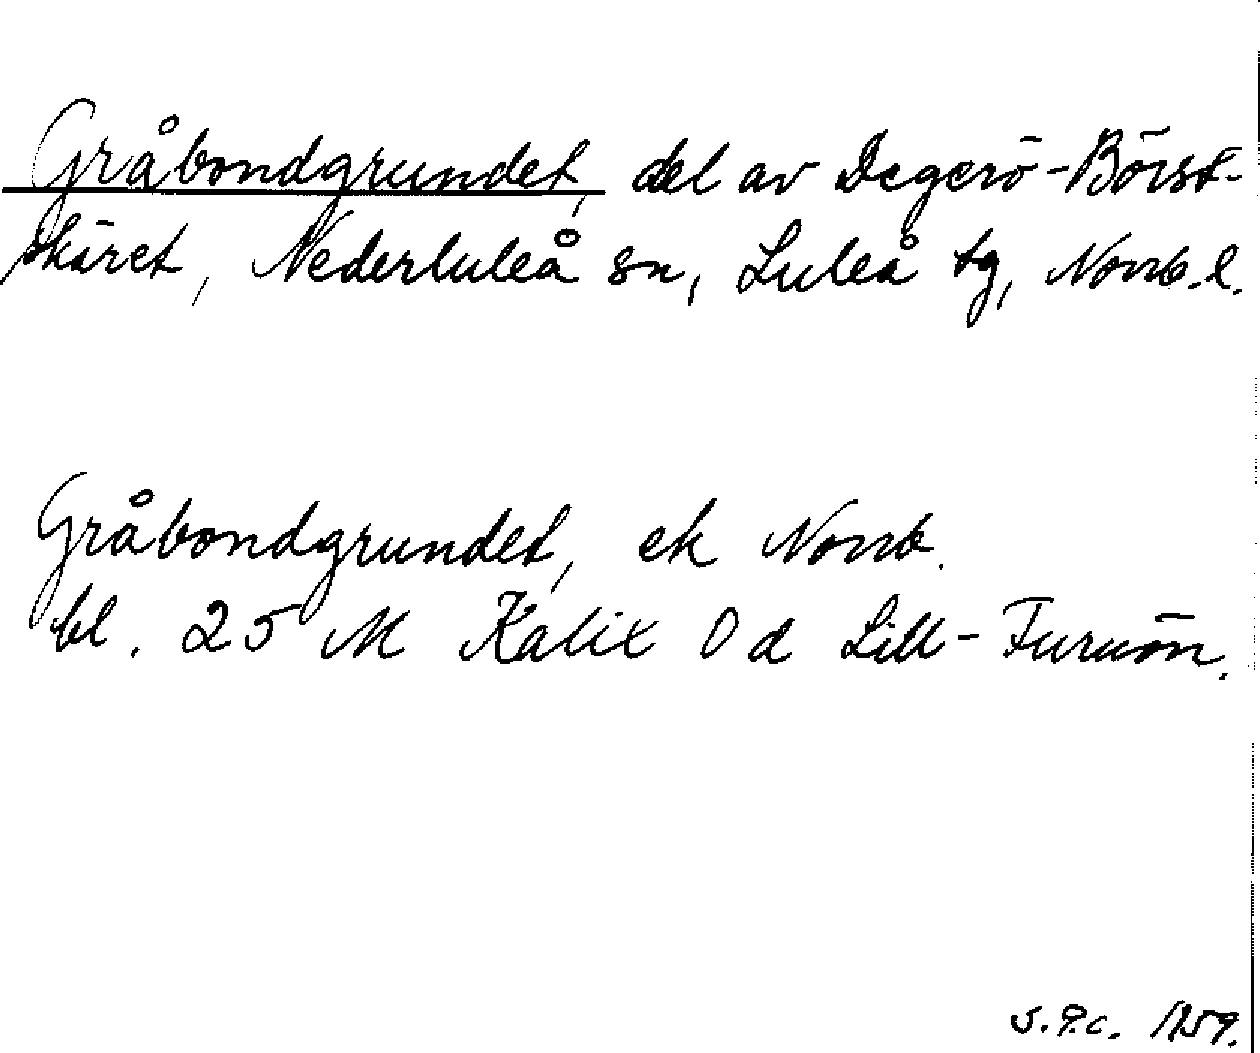 Gråbondgrundet, del av Degerö-Börst-
skäret, Nederluleå sn, Luleå tg, Norrb. l.
Gråbondgrundet, ek Norrb.
bl. 25 M Kalix O d Lill-Furuön.
1959.